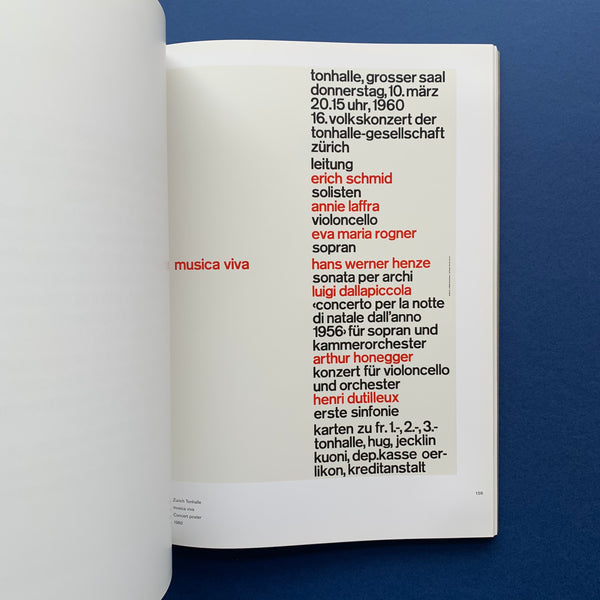 musica viva
tonhalle, grosser saal
donnerstag, 10. märz
20.15 uhr, 1960
16. volkskonzert der
tonhalle-gesellschaft
zürich
leitung
erich schmid
solisten
annie laffra
violoncello
eva maria rogner
sopran
hans werner henze
sonata per archi
luigi dallapiccola
‹concerto per la notte
di natale dall'anno
1956› für sopran und
kammerorchester
arthur honegger
konzert für violoncello
und orchester
henri dutilleux
erste sinfonie
karten zu fr. 1.-, 2.-, 3.-
tonhalle, hug, jecklin
kuoni, dep.kasse oer-
likon, kreditanstalt
Zurich Tonhalle
musica viva
Concert poster
1960
159